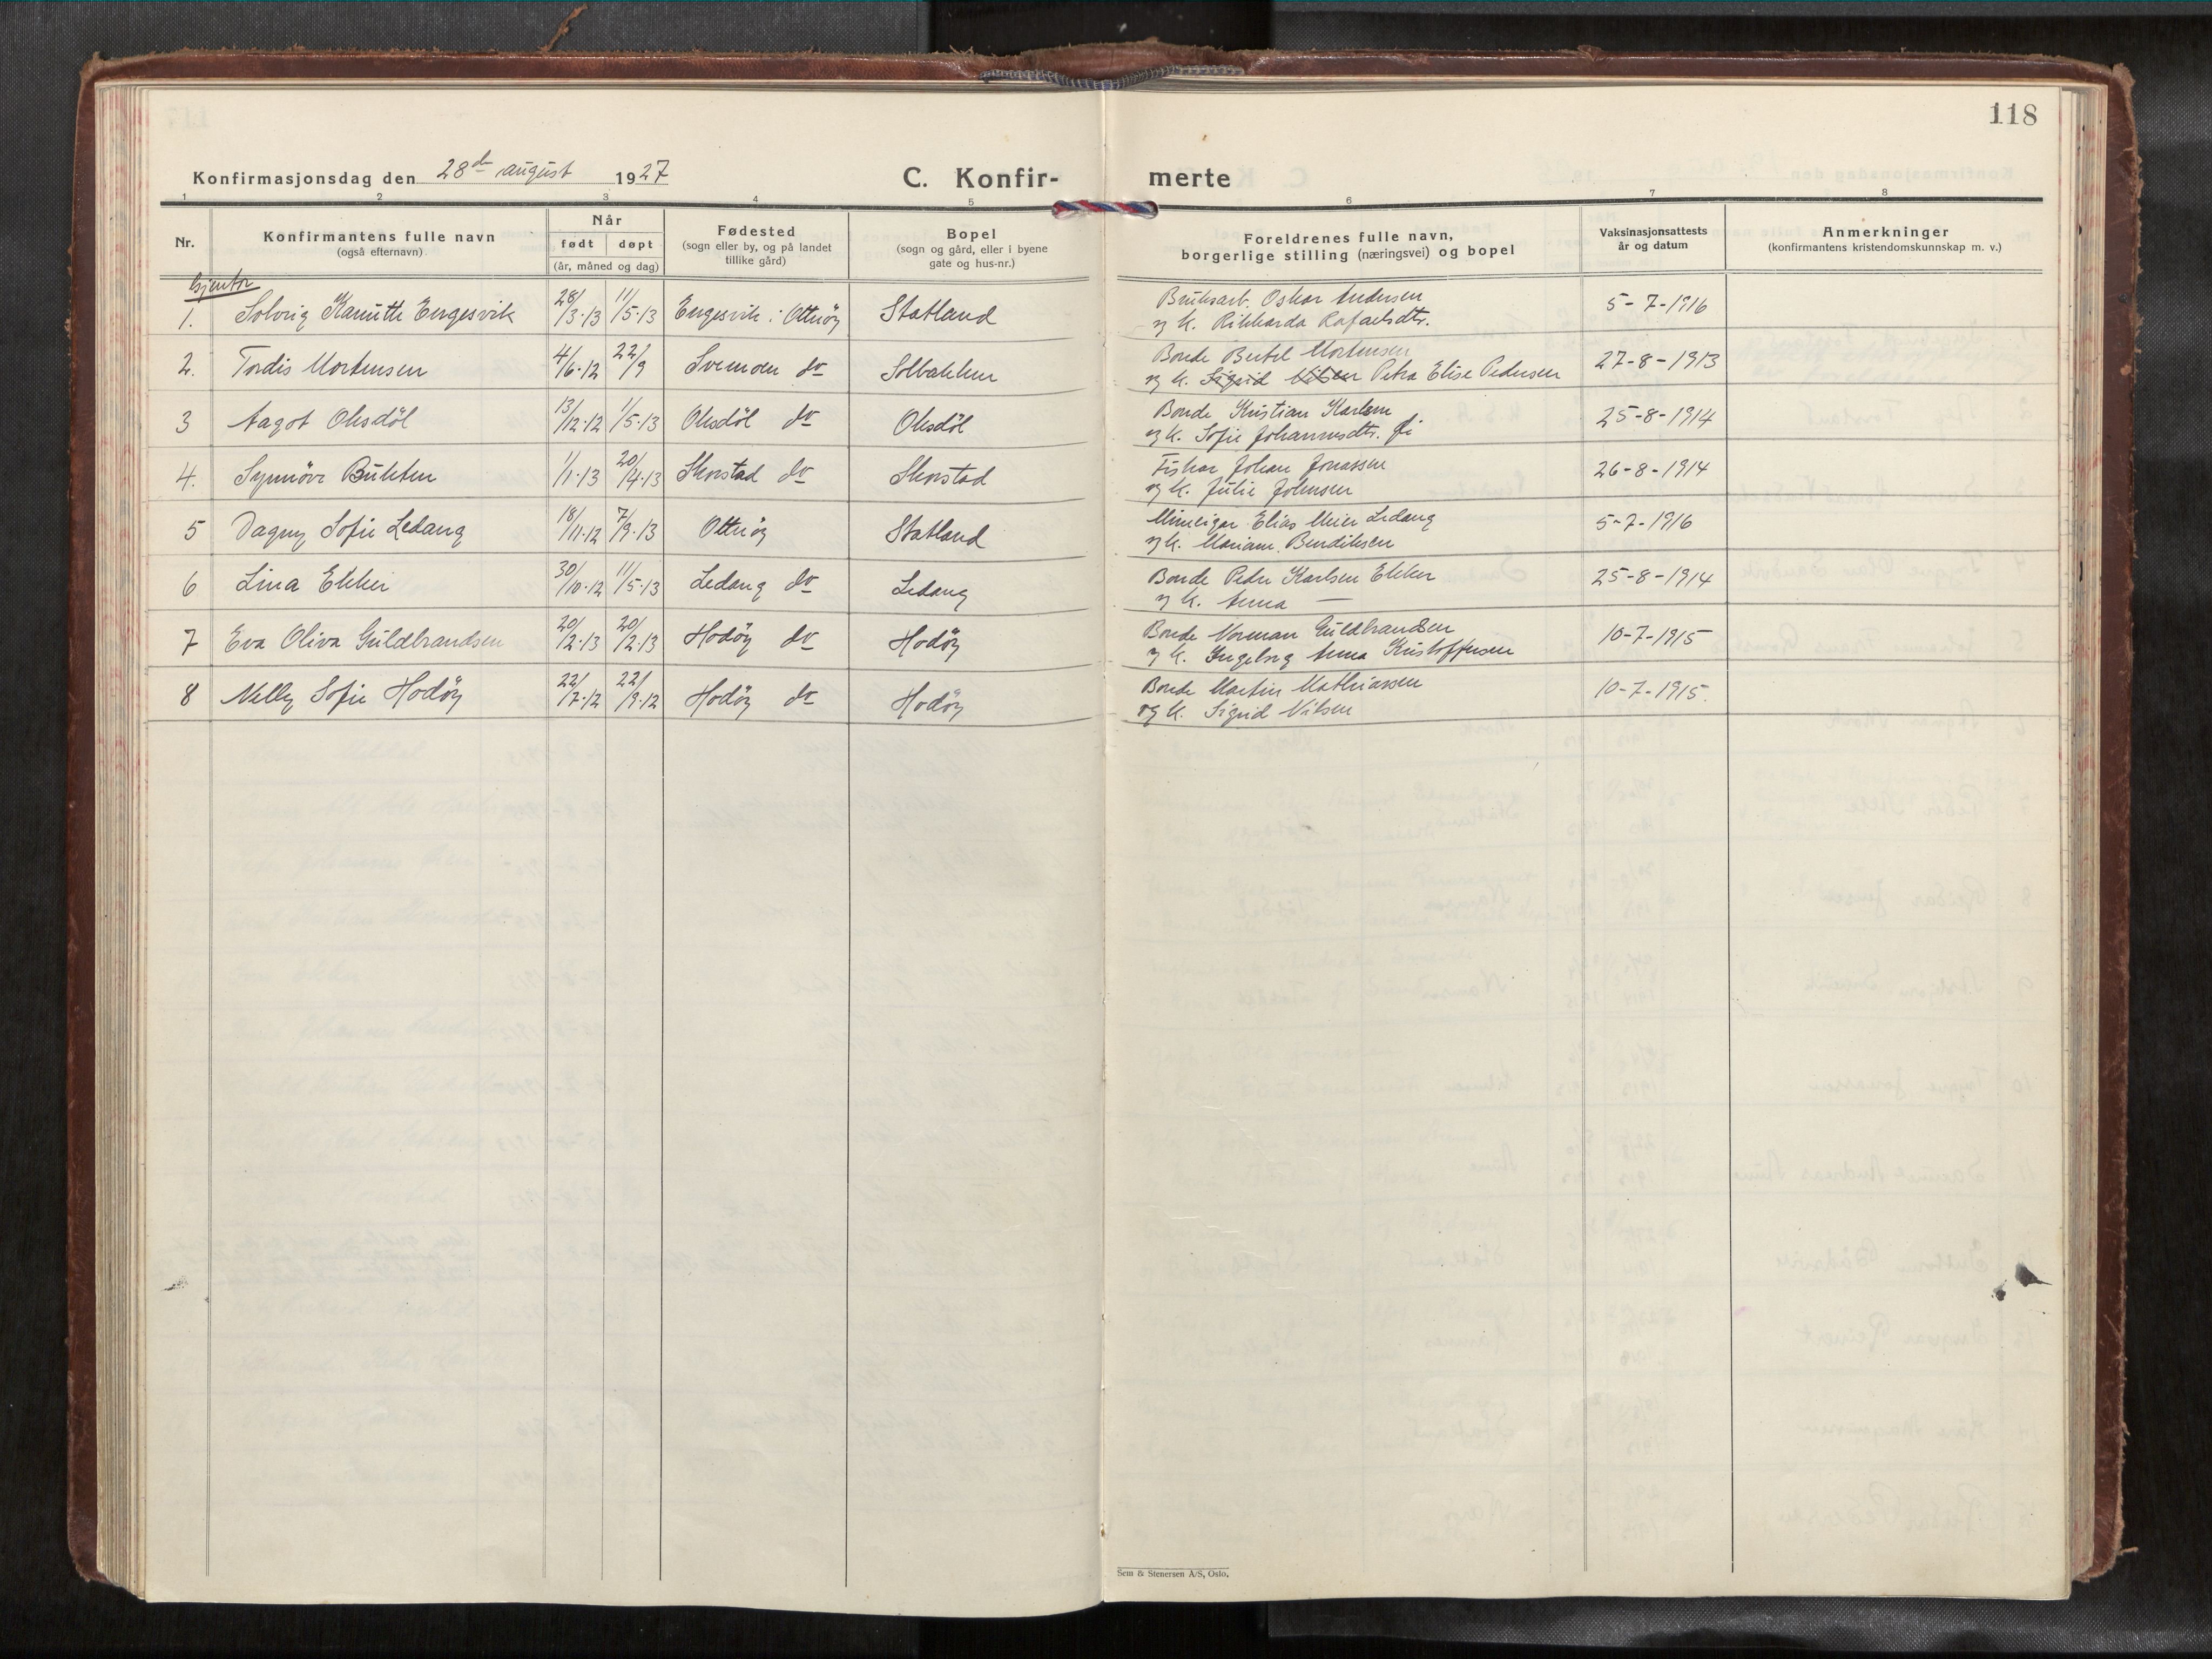 118
Konfirmasjonsdag den 28de august 1927
C. Konfir- merte
1 2 3 4 5 6 7 8
Nr.
Konfirmantens fulle navn
(også efternavn)
Når
født døpt
(år, måned og dag)
Fødested
(sogn eller by, og på landet
tillike gård)
Bopel
(sogn og gård, eller i byene
gate og hus-nr.)
Foreldrenes fulle navn,
borgerlige stilling (næringsvei) og bopel
Vaksinasjonsattests
år og datum
Anmerkninger
(konfirmantens kristendomskunnskap m. v.)
Gjentor
1. Solveig Engesvik 28/3·13 11/5·13 Engesvik i Otterøy Statland Bruksarb. Oskar Andersen 5-7-1916
og k. Rikharda Rafaelsdtr.
2. Tordis Mortensen 4/6·12 22/9 Svenoen do Solbakken Bonde Bertel Mortensen 27-8-1913
og k. Sigrid Nilsen Petra Elise Pedersen
3 Aagot Olsdöl 13/12·12 1/5·13 Olsdöl do Olsdöl Bonde Kristian Karlsen 25-8-1914
og k. Sofie Johannesdtr.
4. Synnöve Bukten 1/1·13 20/4·13 Skorstad do Skorstad Fisker Johan Jonassen 26-8-1914
og k. Julie Johnsen
5 Dagny Sofie Ledang 18/11·12 7/9·13 Otterøy Statland Elias Meier Ledang 5-7-1916
og k. Mariane Bendiksen
6 Lina Ekker 30/10·12 11/5·13 Ledang do Ledang Bonde Peder Karlsen Ekker 25-8-1914
og k. Anna —
7 Eva Oliva Guldbrandsen 20/2·13 20/2·13 Hodöy do Hodöy Bonde Norman Guldbrandsen 10-7-1915
og k. Ingeborg Anna Kristoffersen
8 Nelly Sofie Hodöy 22/7·12 22/9·12 Hodöy do Hodöy Bonde Martin Mathiassen 10-7-1915.
og k. Sigrid Nilsen
Sem & Stenersen A/S, Oslo.